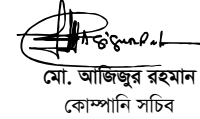 মো. আজিজুর রহমান
কোম্পানি সচিব